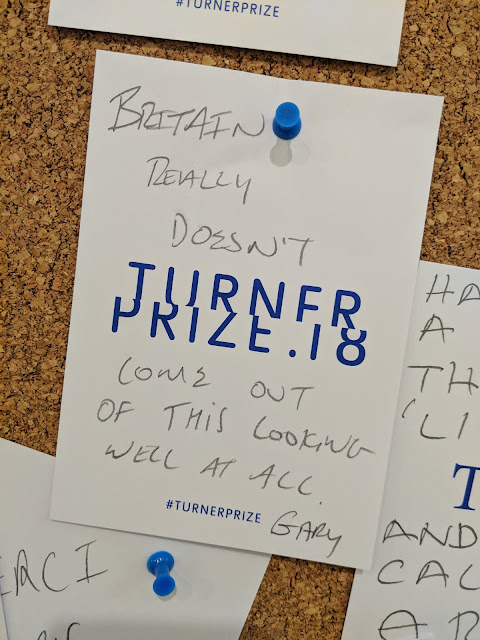 #TURNERPRIZE
BRITAIN
REALLY
DOESN'T
TURNER
PRIZE.18
COME OUT
OF THIS LOOKING
WELL AT ALL.
#TURNERPRIZE
GARY
HA
A
TH
'LI
T
AND
CAL